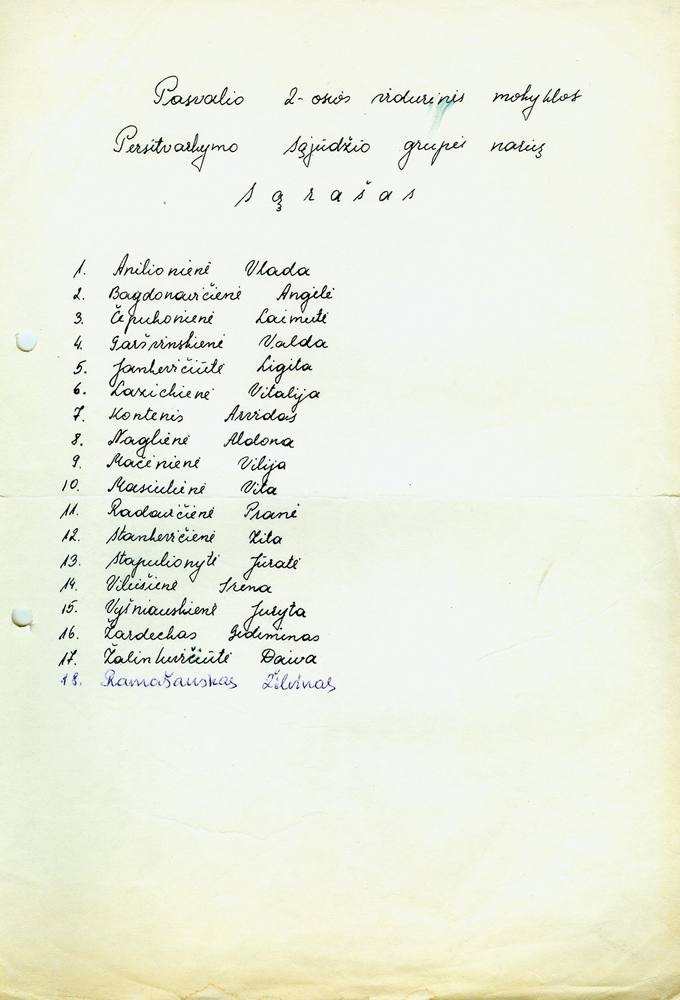 Pasvalio 2-osios vidurinės mokyklos
Persitvarkymo Sąjūdžio grupės narių
sąrašas
1. Anilionienė Vlada
2. Bagdonavičienė Angelė
3. Čepukonienė Laimutė
4. Garšvinskienė Valda
5. Jankevičiūtė Ligita
6. Lazickienė Vitalija
7. Kontenis Arvidas
8. Naglienė Aldona
9. Mačėnienė Vilija
10. Masiulienė Vita
11. Radavičienė Pranė
12. Stankevičienė Zita
13. Stapulionytė Jūratė
14. Vilušienė Irena
15. Vyšniauskienė Juryta
16. Žardeckas Gediminas
17. Žalinkevičiūtė Daiva
18. Ramašauskas Žilvinas